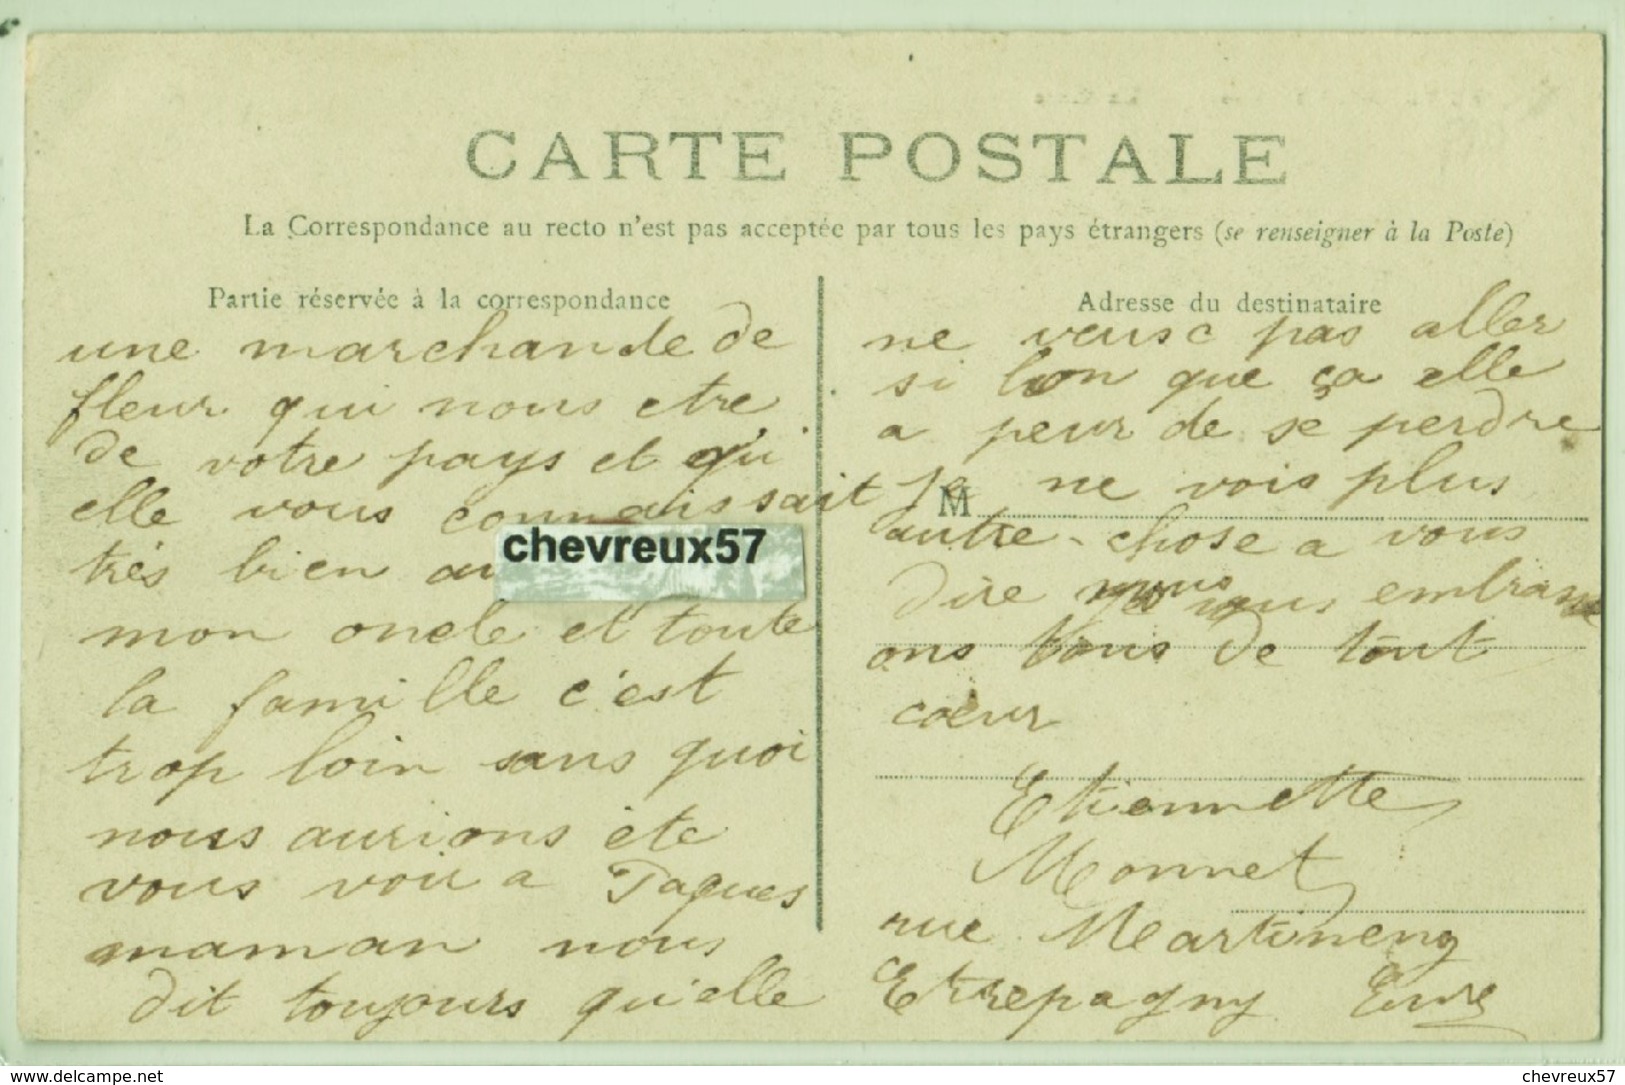 CARTE POSTALE
La Correspondance au recto n'est pas acceptée par tous les pays étrangers (se renseigner à la Poste)
Partie réservée à la correspondance
une marchande de
fleur qui nous etre
de votre pays et qui
elle vous connaissait
très bien
mon oncle et toute
la famille c'est
trop loin sans quoi
nous aurions éte
vous voir a Paques
maman nous
dit toujours qu'elle
Adresse du destinataire
ne veusc pas aller
si lion que ça elle
a peur de se perdre
M
Je ne vois plus
autre-chose a vous
dire nous vous embrass
ons tous de tout
cœur
Etiennette
Monnet
rue Martineng
Etrepagny Eure
chevreux57
www.delcampe.net
chevreux57